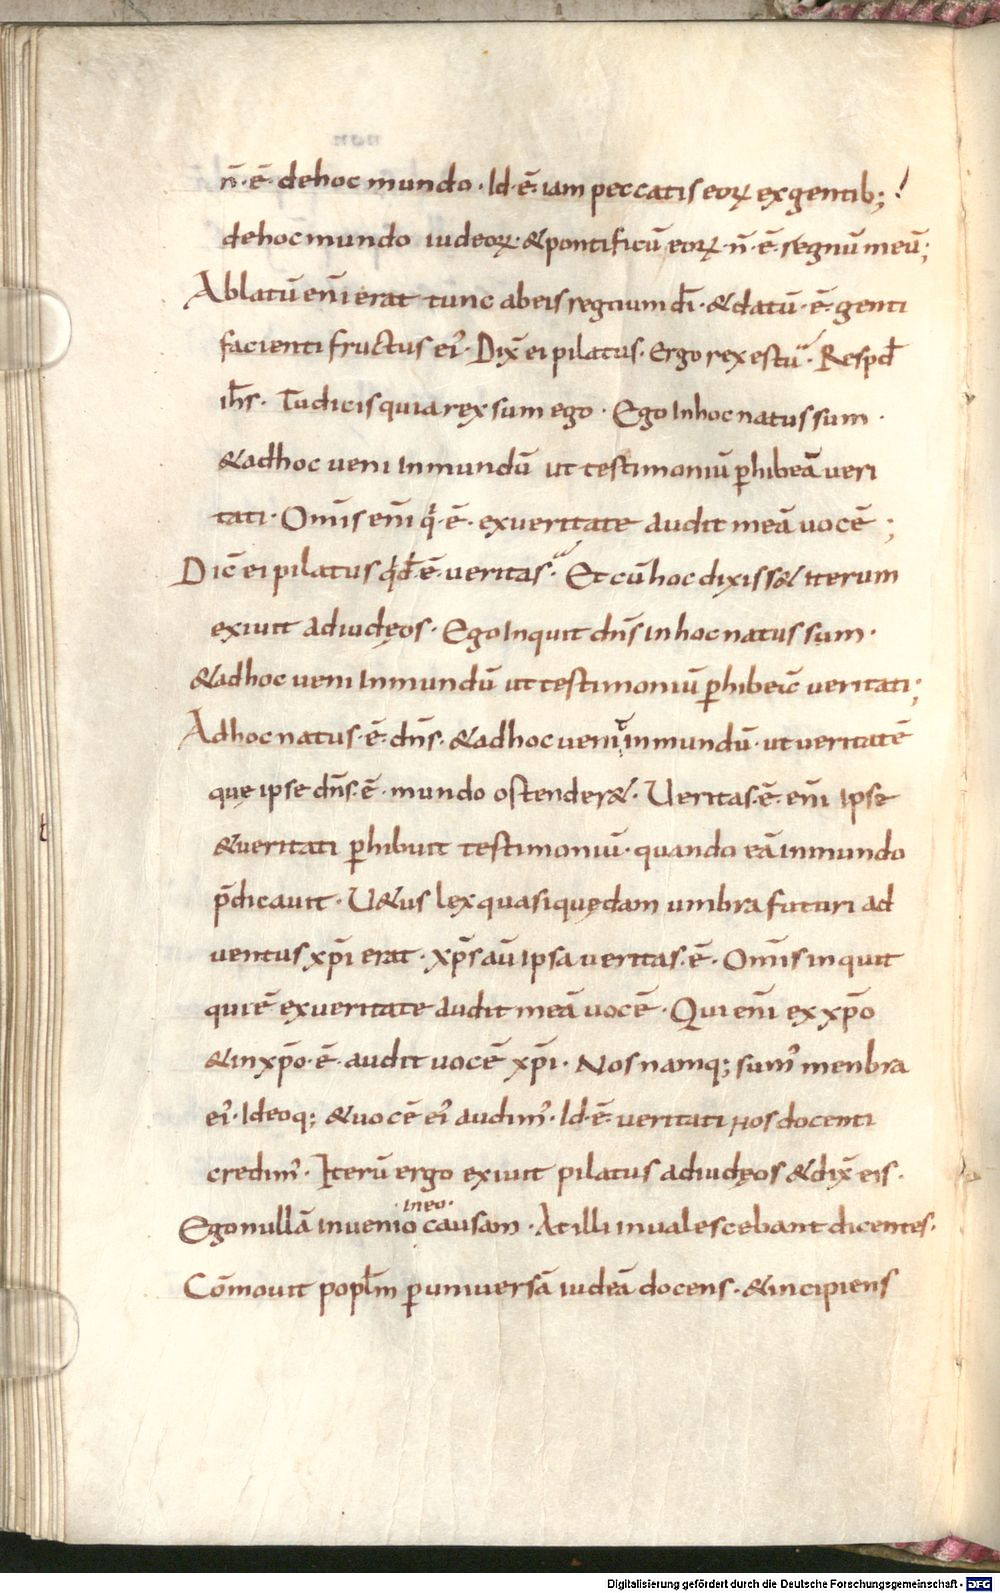 n̄·ē· dehoc mundo· Id·ē· iam peccatis eoꝝ exgentib;!
dehocmundo iudeoꝝ· &pontificū eoꝝ n̄·ē· regnū meū;
Ablatū eni̅ erat tunc abeis regnum di̅· &datū·ē· genti
facienti fructus ei᾽· Dix̄ ei pilatus· Ergo rex es tu· Respd̄
ih̅s· Tu dicis quia rex sum ego· Ego Inhoc natus sum·
&adhoc ueni Inmundū ut testimoniū ꝑhibeā ueri
tati· Om̅is eni̅ q͛·ē· exueritate audit meā uocē;
Dic̄ ei pilatus q͛d̄·ē· ueritas· Et cū hoc dixiss& iterum
exiuit adiudęos· Ego Inquit dn̅s inhoc natus sum·
&adhoc ueni Inmundū ut testimoniū ꝑhibeā ueritati;
Adhoc natus·ē· dn̅s· &adhoc uenit inmundū· ut ueritatē
quę ipse dn̅s·ē· mundo ostender&· Ueritas·ē· eni̅ Ipse
&ueritati ꝑhibuit testimoniū· quando eā inmundo
p̄dicauit· U&us lex quasi quędam umbra futuri ad
uentus xp̅i erat· xp̅s aū Ipsa ueritas·ē· Om̅is inquit
qui ē exueritate audit meā uocē· Qui eni̅ ex xp̅o
&in xp̅o·ē· audit uocē xp̅i· Nos namq; sum᾽ menbra
ei᾽· Ideoq; &uocē ei᾽ audim᾽· Id·ē· ueritati nos docenti
credim᾽· Iterū ergo exiuit pilatus adiudęos &dix̄ eis·
·ineo·
Ego nullā inuenio causam· At illi inualescebant dicentes·
Cōmouit popl̅m ꝑuniuersā iudeā docens· &incipiens
t
Digitalisierung gefördert durch die Deutsche Forschungsgemeinschaft - DFG